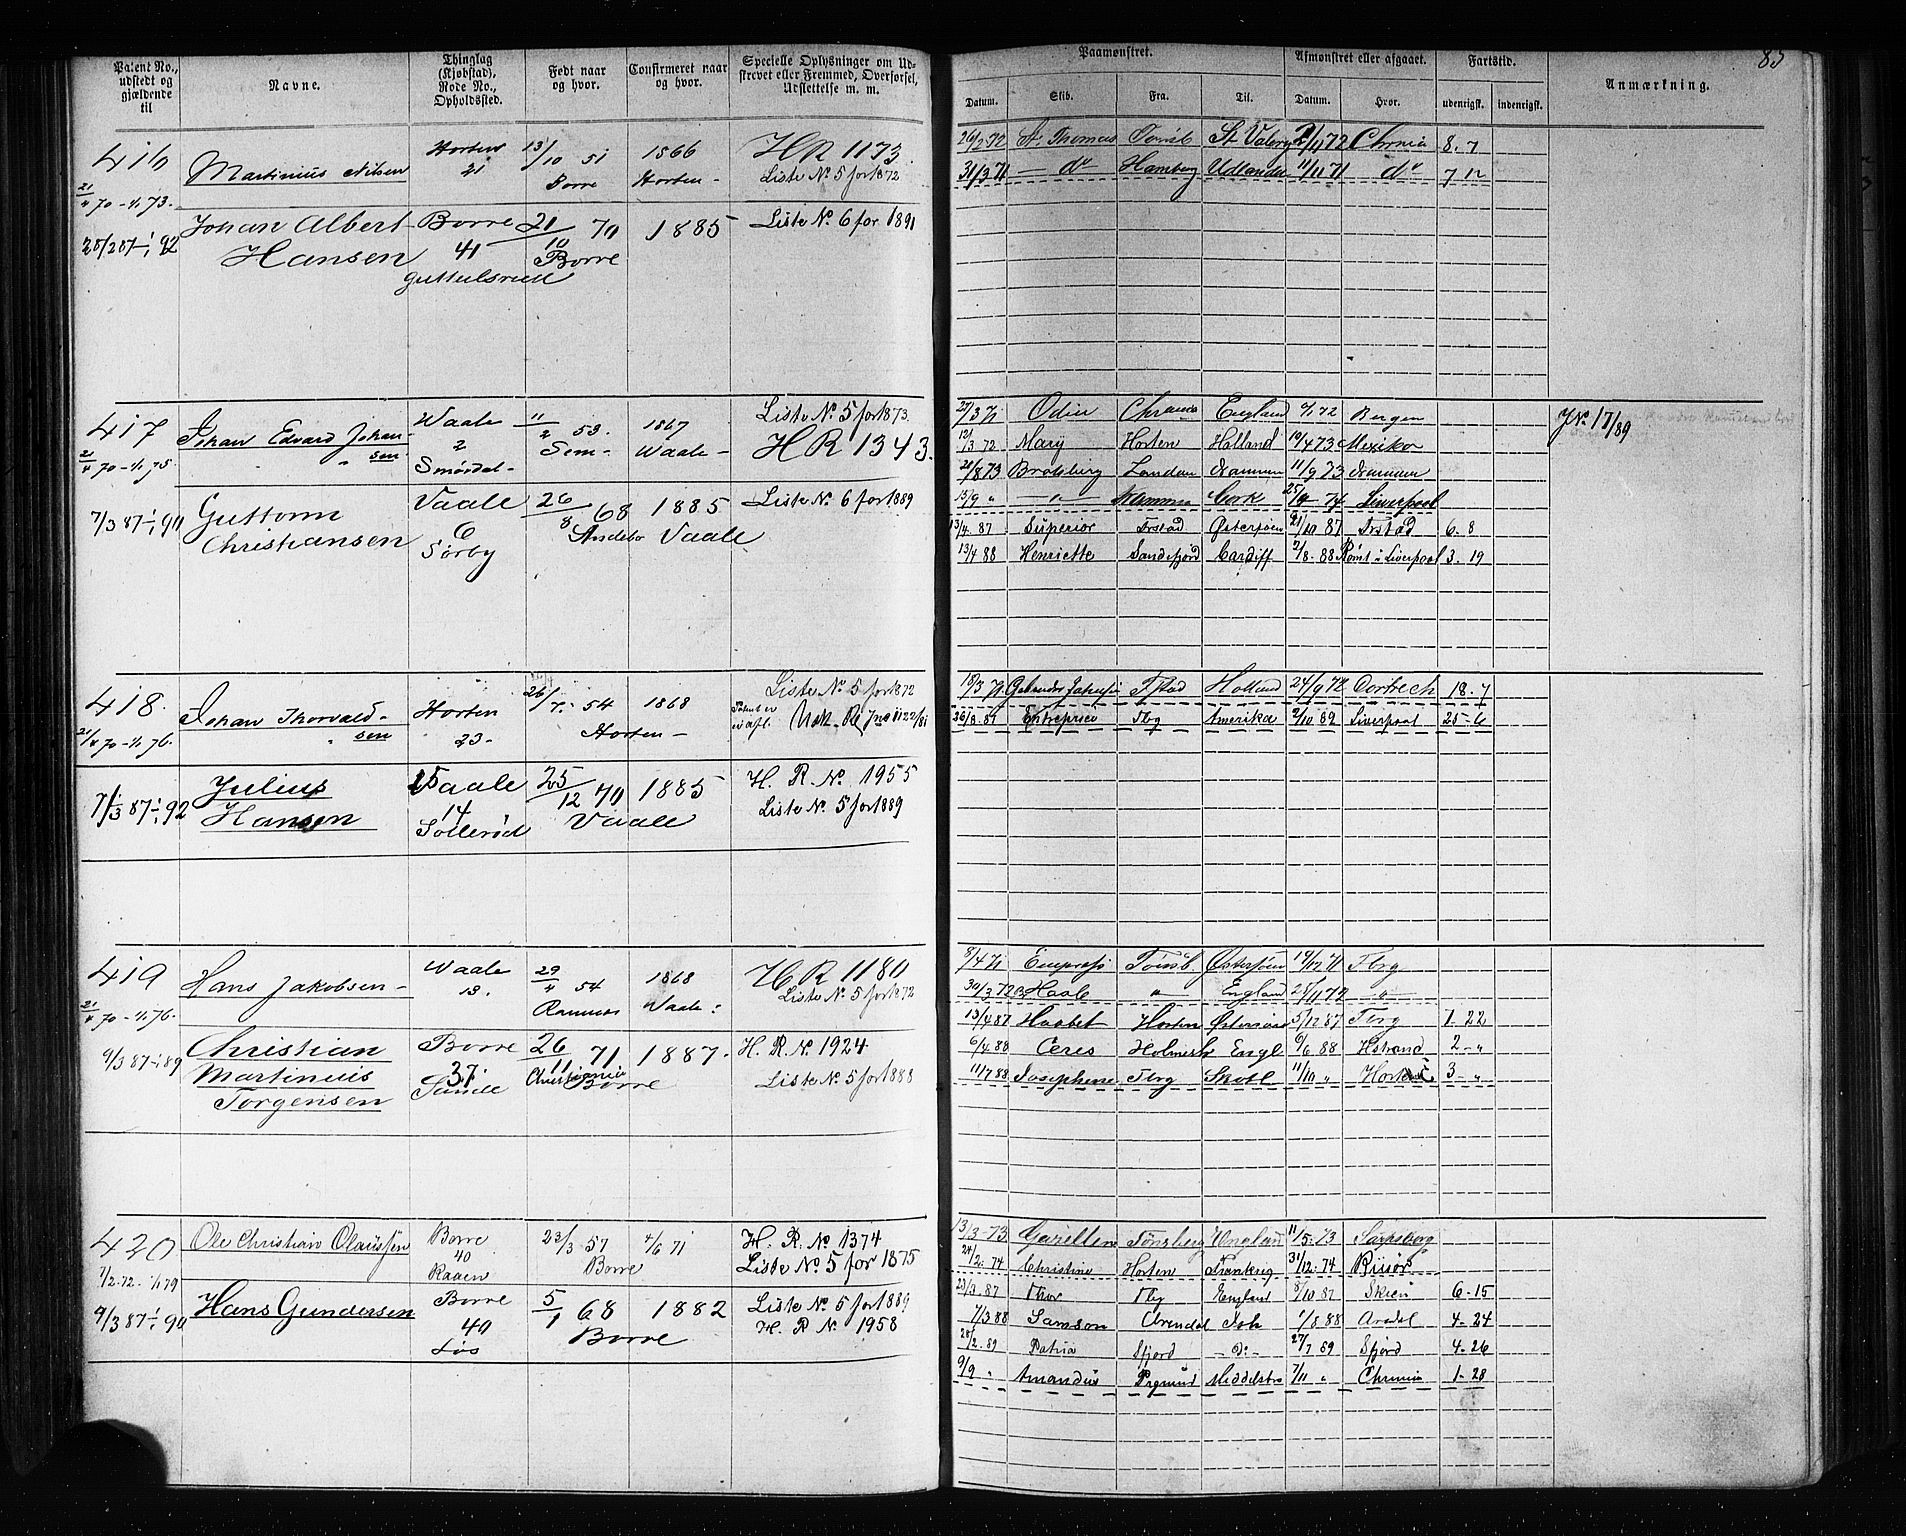 85
Patent No., udstedt og gjældende til
Navne.
Thinglag (Kjøbstad), Rode No., Opholdssted.
Født naar og hvor.
Confirmeret naar og hvor.
Specielle Oplysninger om Udskrevet eller Fremmed, Overførsel, Udslettelse m. m.
Paamønstret.
Afmønstret eller afgaaet.
Fartstid.
Anmærkning.
Datum. Skib. Fra. Til. Datum. Hvor. udenrigsk. indenrigsk.
416 Martinius Nilsen Horten 21 13/10 51 Borre 1866 Horten - HR 1173.
21/4 70 - 1/1 73. Liste No. 5 for 1872
26/2 72 St. Thomas Tønsb St. Valery /11 72 Chrnia 8. 7
31/3 71 — do Hamborg Udlandet 11/11 71 do 7 12
Johan Albert Hansen Borre 41 21/10 70 Borre 1885 Liste No. 6 for 1891
25/2 87 - 1/1 92
417 Johan Edvard Johansen Waale 2 11/2 53. Sem - 1867 Waale - Liste No. 5 for 1873.
21/4 70 - 1/1 75. HR 1343.
27/3 71 Odin England 72 Bergen JNo. 17/89
12/3 72 Mary Horten Holland 10/4 73 Mexiko
/8 73 London Drammen 11/9 73 Drammen
15/9 " — " — Drammen Cork 74 Liverpool
Guttorm Christiansen Vaale 6 Sørby 26/8 68 Andebo 1885 Vaale Liste No. 6 for 1889
7/3 87 - 1/1 90
13/4. 87 Superior Østersøen 21/10 87 6. 8
13/4 88 Henriette Sandefjord Cardiff 2/8. 88 Rømt i Liverpool 3. 19
418. Johan Thorvaldsen Horten 23. 26/7. 54 1868 Horten - Liste No. 5 for 1872
21/4 70 - 1/1 76.
/3 71 Holland 24/9 72 Dortrech 18. 7
26/8. 89 Entreprise Tbg Amerika 2/10 89 Liverpool 25-6
Julius Hansen Vaale 14 25/12 70 Vaale 1885 H. R. No. 1955
7/3 87 - 1/1 92 Liste No. 5 for 1889
419 Hans Jakobsen - Waale 13. 29/4 54 Ramnes 1868 Waale HR 1180
21/4 70 - 1/1 76. Liste No. 5 for 1872
8/4 71 Empress Tønsb Østersøen 14/12 71 Tbrg
30/3 72 Hasle " England /11 72 — " —
13/4 87 Haabet Horten 5/12 87 Tbrg 7- 22
Christian Martinius Jørgensen Borre 37 Sande 26/11 71 Christiania 1887. Borre H. R. No. 1924
9/3 87 - 1/1 89 Liste No. 5 for 1888
6/4. 88 Ceres Holmestr Engl 9/6 88 Hstrand 2- "
11/7 88 Josephine Tbrg Skotl 11/10 " Horten 3- "
420 Ole Christian Olaussen Borre 40 Raaen 23/3 57 Borre 4/6 71 H. R. No 1374
7/2 72. - 1/1 79 Liste No 5 for 1875
13/3-73 Tønsberg England 11/5-73 Sarpsborg
24/2. 74 Christine Horten Frankrig 31/12-74 Risør
Hans Gundersen Borre 40 Løs 5/1 68 Borre 1882 Liste No. 5 for 1889
9/3 87 - 1/1 90 H. R No. 1958
23/3. 87 Thor Tbg England 8/10 87 Skien 6-15
7/3 88 Samson Arendal 1/8 88 Aredal 4-24
28/2. 89 Patria Sfjord - Do - 27/7 89 Sfjord 4-26
9/9 " Amandus Middelh 7/11 " Chrnia 1-28